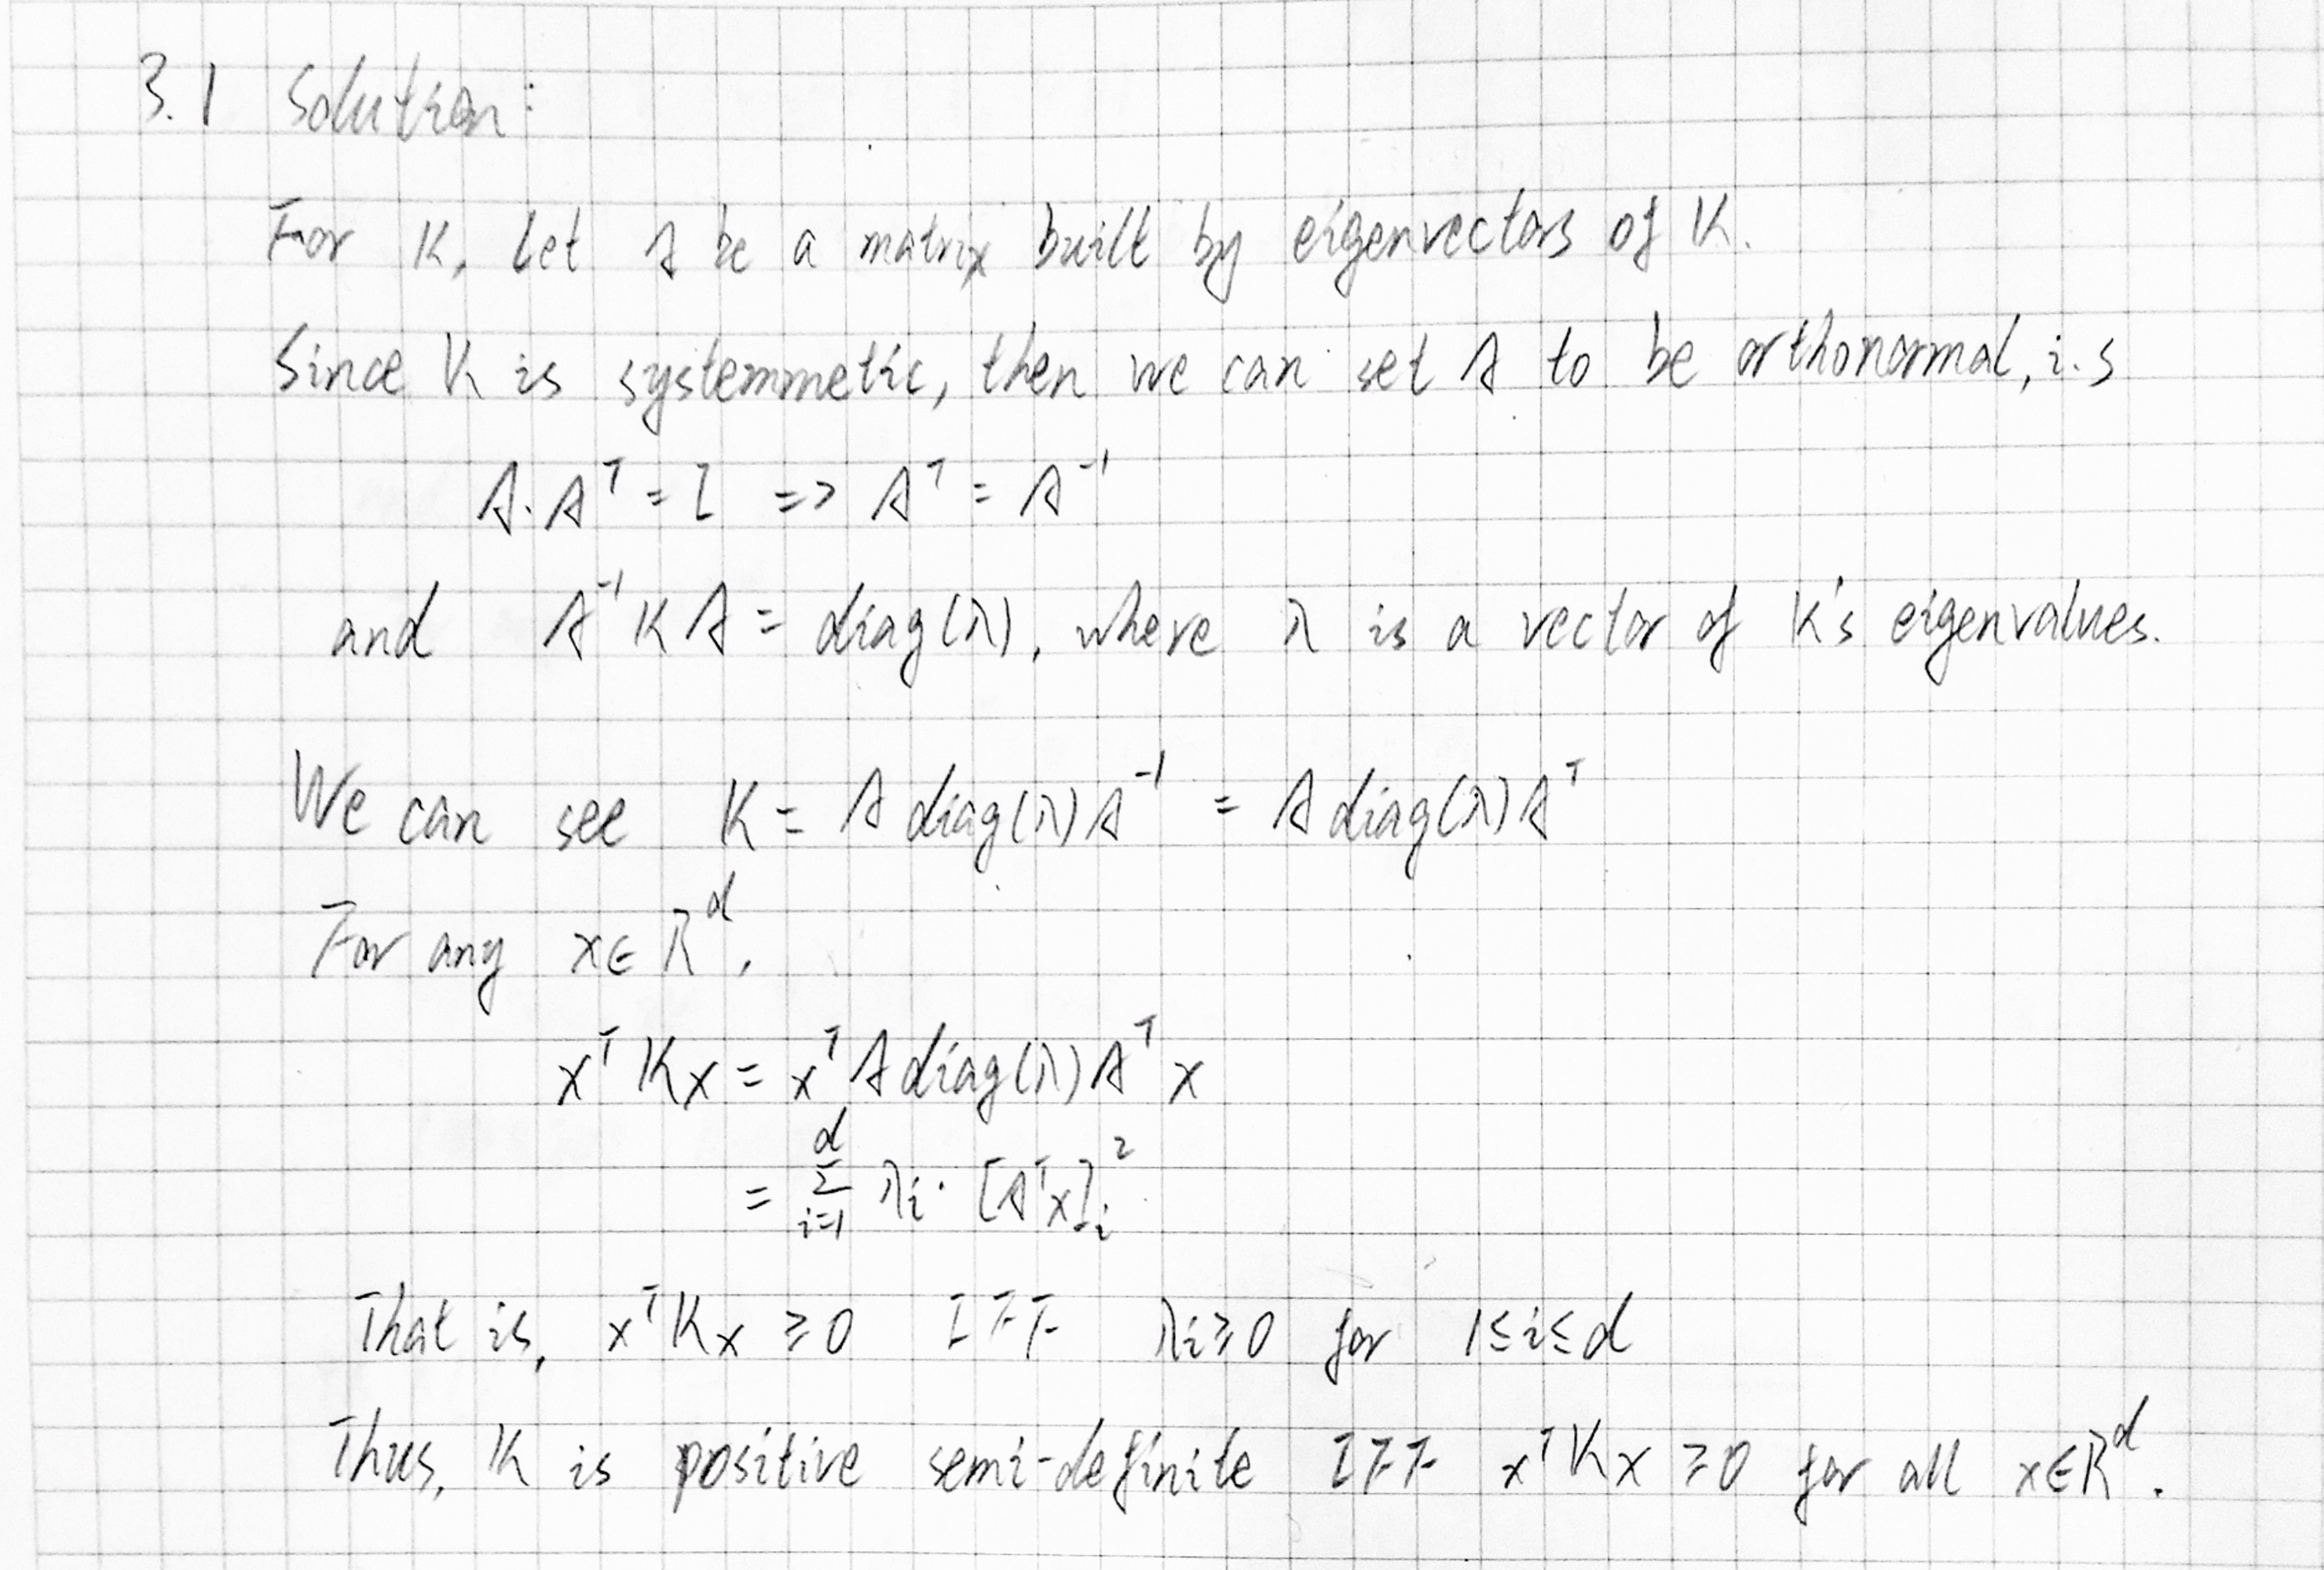 3.1 Solution:
For K, let A be a matrix built by eigenvectors of K.
Since K is systemmetic, then we can set A to be orthonormal, i.s
A·Aᵀ = I => Aᵀ = A⁻¹
and A⁻¹KA = diag(λ), where λ is a vector of K's eigenvalues.
We can see K = A diag(λ)A⁻¹ = A diag(λ)Aᵀ
For any x∈ℝᵈ,
xᵀKx = xᵀA diag(λ)Aᵀx
= Σᵢ₌₁ᵈ λᵢ· [Aᵀx]ᵢ²
That is, xᵀKx ≥ 0 IFF λᵢ≥0 for 1≤i≤d
Thus, K is positive semi-definite IFF xᵀKx ≥0 for all x∈ℝᵈ.